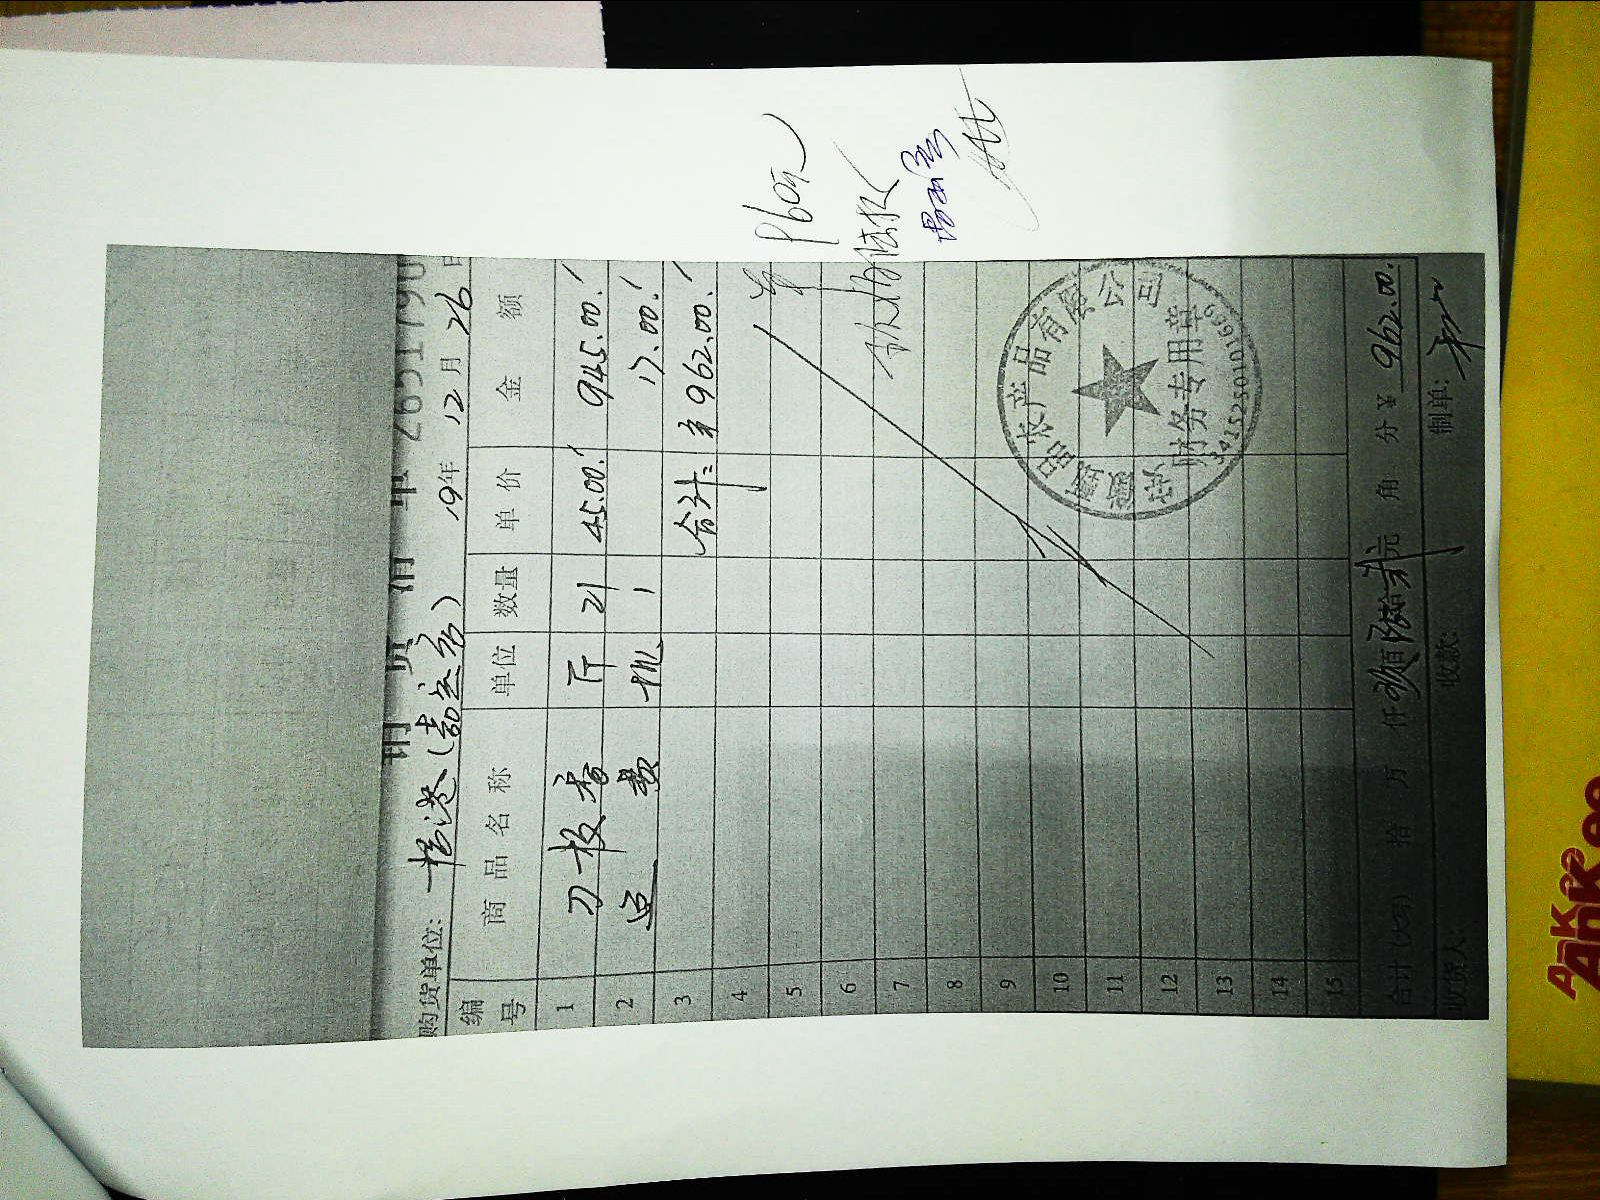 销货清单 2651790
购货单位: 19年12月26日
编号 商品名称 单位 数量 单价 金额
1 刀板香 斤 21 45.00 945.00
2 运费 批 1 17.00
3 合计: ¥962.00
4
5
6
7
8
9
10
11
12
13
14
15
农产品有限公司
财务专用章
3415250101669
合计(大写) 拾 万 仟 玖佰陆拾贰元 角 分 ¥ 962.00
收货人: 收款: 制单:
AnKee